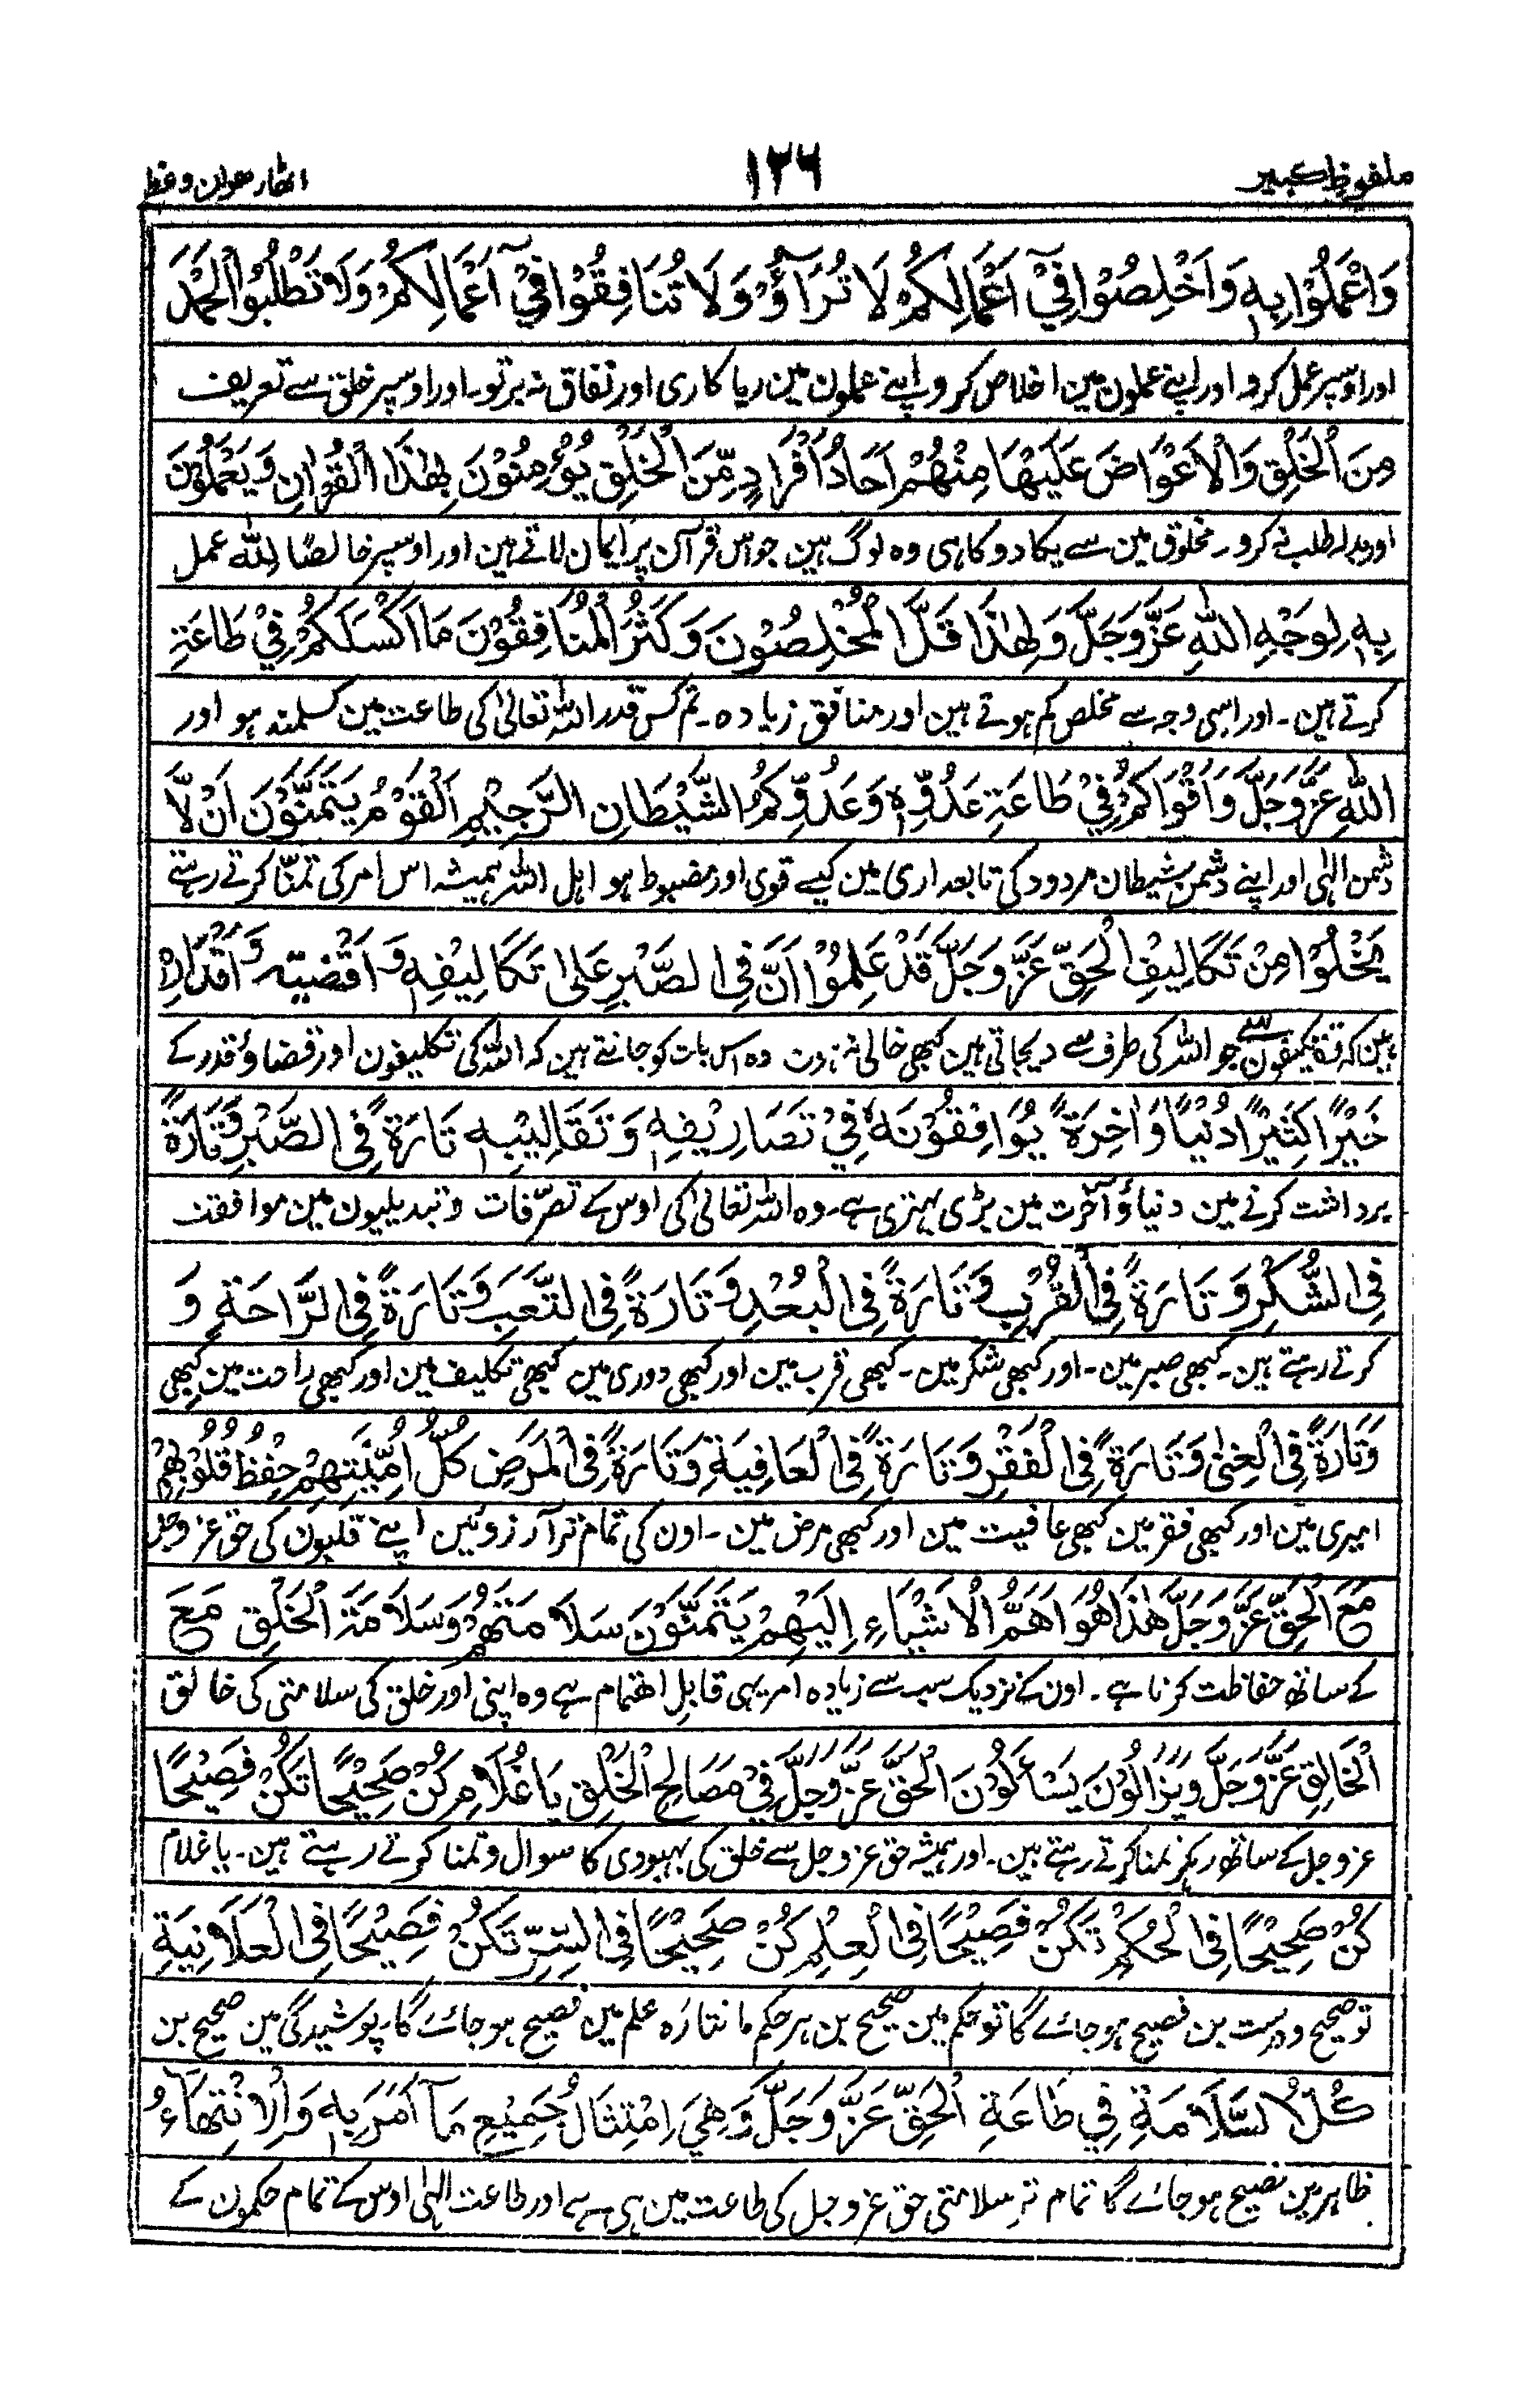 ملفوظ کبیر
۱۲۶
اٹھارھواں وعظ
وَاعْمَلُوْا بِهٖ وَاَخْلِصُوْا فِيْٓ اَعْمَالِكُمْ لَا تُرَآؤُ وَلَا تُنَافِقُوْا فِيْٓ اَعْمَالِكُمْ وَلَا تَطْلُبُوا الْحَمْدَ
اور اوسپر عمل کرو اور اپنے عملون مین اخلاص کرو اپنے عملون مین ریا کاری اور نفاق نہ برتو۔ اور اوسپر خلق سے تعریف
مِنَ الْخَلْقِ وَالْاَعْوَاضَ عَلَيْهَا مِنْهُمْ اٰحَادُ اَفْرَادٍ مِّنَ الْخَلْقِ يُؤْمِنُوْنَ بِهٰذَا الْقُرْاٰنِ وَيَعْمَلُوْنَ
اور بدلہ طلب نہ کرو۔ مخلوق مین سے یکا دوکا ہی وہ لوگ ہین جو اس قرآن پر ایمان لاتے ہین اور اوسپر خالصًا للہ عمل
بِهٖ لِوَجْهِ اللّٰهِ عَزَّ وَجَلَّ وَلِهٰذَا قَلَّ الْمُخْلِصُوْنَ وَكَثُرَ الْمُنَافِقُوْنَ مَا اَكْسَلَكُمْ فِيْ طَاعَةِ
کرتے ہین۔ اور اسی وجہ سے مخلص کم ہوتے ہین اور منافق زیادہ۔ تم کس قدر اللہ تعالیٰ کی طاعت مین کسلمند ہو اور
اللّٰهِ عَزَّ وَجَلَّ وَاَقْوَاكُمْ فِيْ طَاعَةِ عَدُوِّهٖ وَعَدُوِّكُمُ الشَّيْطَانِ الرَّجِيْمِ اَلْقَوْمُ يَتَمَنَّوْنَ اَنْ لَّا
دشمن الٰہی اور اپنے دشمن شیطان مردود کی تابعداری مین کیسے قوی اور مضبوط ہو اہل اللہ ہمیشہ اس امر کی تمنّا کرتے رہتے
يَخْلُوْا مِنْ تَكَالِيْفِ الْحَقِّ عَزَّ وَجَلَّ قَدْ عَلِمُوْا اَنَّ فِي الصَّبْرِ عَلٰى تَكَالِيْفِهٖ وَاَقْضِيَتِهٖ وَاَقْدَارِهٖ
ہین کہ تکلیفون سے جو اللہ کی طرف سے دیجاتی ہین کبھی خالی نہ وہ اس بات کو جانتے ہین کہ اللہ کی تکلیفون اور قضا وقدر کے
خَيْرًا كَثِيْرًا دُنْيًا وَاٰخِرَةً يُوَافِقُوْنَهٗ فِيْ تَصَارِيْفِهٖ وَتَقَالِيْبِهٖ تَارَةً فِي الصَّبْرِ وَتَارَةً
برداشت کرنے مین دنیا وآخرت مین بڑی بہتری ہے۔ وہ اللہ تعالیٰ کی اوس کے تصرّفات و تبدیلیون مین موافقت
فِي الشُّكْرِ وَتَارَةً فِي الْقُرْبِ وَتَارَةً فِي الْبُعْدِ وَتَارَةً فِي التَّعَبِ وَتَارَةً فِي الرَّاحَةِ وَ
کرتے رہتے ہین۔ کبھی صبر مین۔ اور کبھی شکر مین۔ کبھی قرب مین اور کبھی دوری مین کبھی تکلیف مین اور کبھی راحت مین کبھی
وَتَارَةً فِي الْغِنٰى وَتَارَةً فِي الْفَقْرِ وَتَارَةً فِي الْعَافِيَةِ وَتَارَةً فِي الْمَرَضِ كُلُّ اُمْنِيَّتِهِمْ حِفْظُ قُلُوْبِهِمْ
امیری مین اور کبھی فقر مین کبھی عافیت مین اور کبھی مرض مین۔ اون کی تمام تر آرزوئین اپنے قلبون کی حق عز وجل
مَعَ الْحَقِّ عَزَّ وَجَلَّ هٰذَا هُوَ اَهَمُّ الْاَشْيَاءِ اِلَيْهِمْ يَتَمَنَّوْنَ سَلَامَتَهُمْ وَسَلَامَةَ الْخَلْقِ مَعَ
کے ساتھ حفاظت کرنا ہے۔ اون کے نزدیک سب سے زیادہ امر یہی قابل اہتمام ہے وہ اپنی اور خلق کی سلامتی کی خالق
الْخَالِقِ عَزَّ وَجَلَّ وَيَزَالُوْنَ يَسْاَلُوْنَ الْحَقَّ عَزَّ وَجَلَّ فِيْ مَصَالِحِ الْخَلْقِ يَا غُلَامِ كُنْ صَحِيْحًا تَكُنْ فَصِيْحًا
عز وجل کے ساتھ رکہر تمنا کرتے رہتے ہین۔ اور ہمیشہ حق عز وجل سے خلق کی بہبودی کا سوال و تمنا کرتے رہتے ہین۔ یا غلام
كُنْ صَحِيْحًا فِي الْحُكْمِ تَكُنْ فَصِيْحًا فِي الْعِلْمِ كُنْ صَحِيْحًا فِي السِّرِّ تَكُنْ فَصِيْحًا فِي الْعَلَانِيَةِ
تو صحیح ودرست بن فصیح ہو جائے گا تو حکم مین صحیح بن ہر حکم مانتا رہ علم مین فصیح ہو جائے گا۔ پوشیدگی مین صحیح بن
كُلُّ السَّلَامَةِ فِي طَاعَةِ الْحَقِّ عَزَّ وَجَلَّ وَهِيَ امْتِثَالُ جَمِيْعِ مَآ اَمَرَ بِهٖ وَالْاِنْتِهَآءُ
ظاہر مین فصیح ہو جائے گا تمام تر سلامتی حق عز وجل کی طاعت مین ہی ہے اور طاعت الٰہی اوس کے تمام حکمون کے